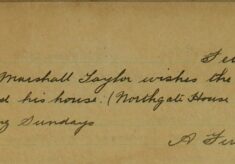 Marshall Taylor wishes the
d his house. (Northgate House
ng Sundays
A